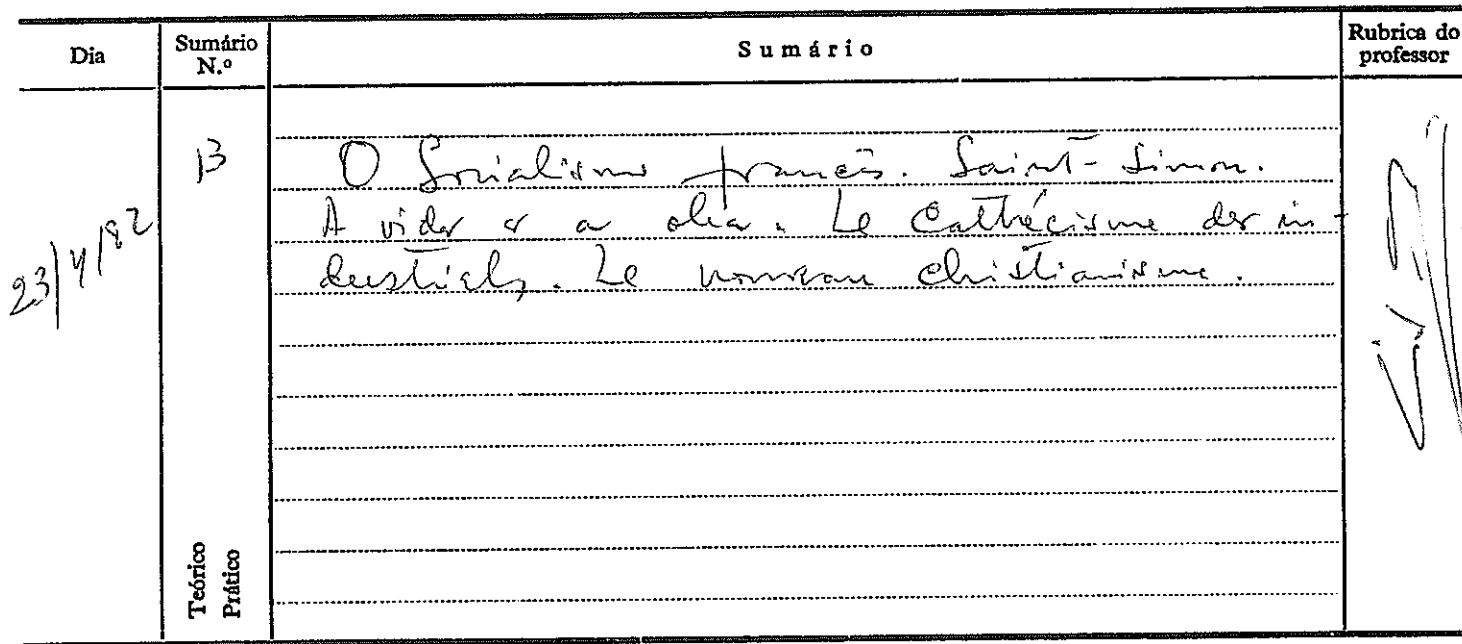 Dia Sumário N.º Sumário Rubrica do professor
23/4/82 13 O Socialismo francês. Saint-Simon.
A vida e a obra. Le Cathécisme des in-
dustriels. Le nouveau christianisme.
Teórico
Prático